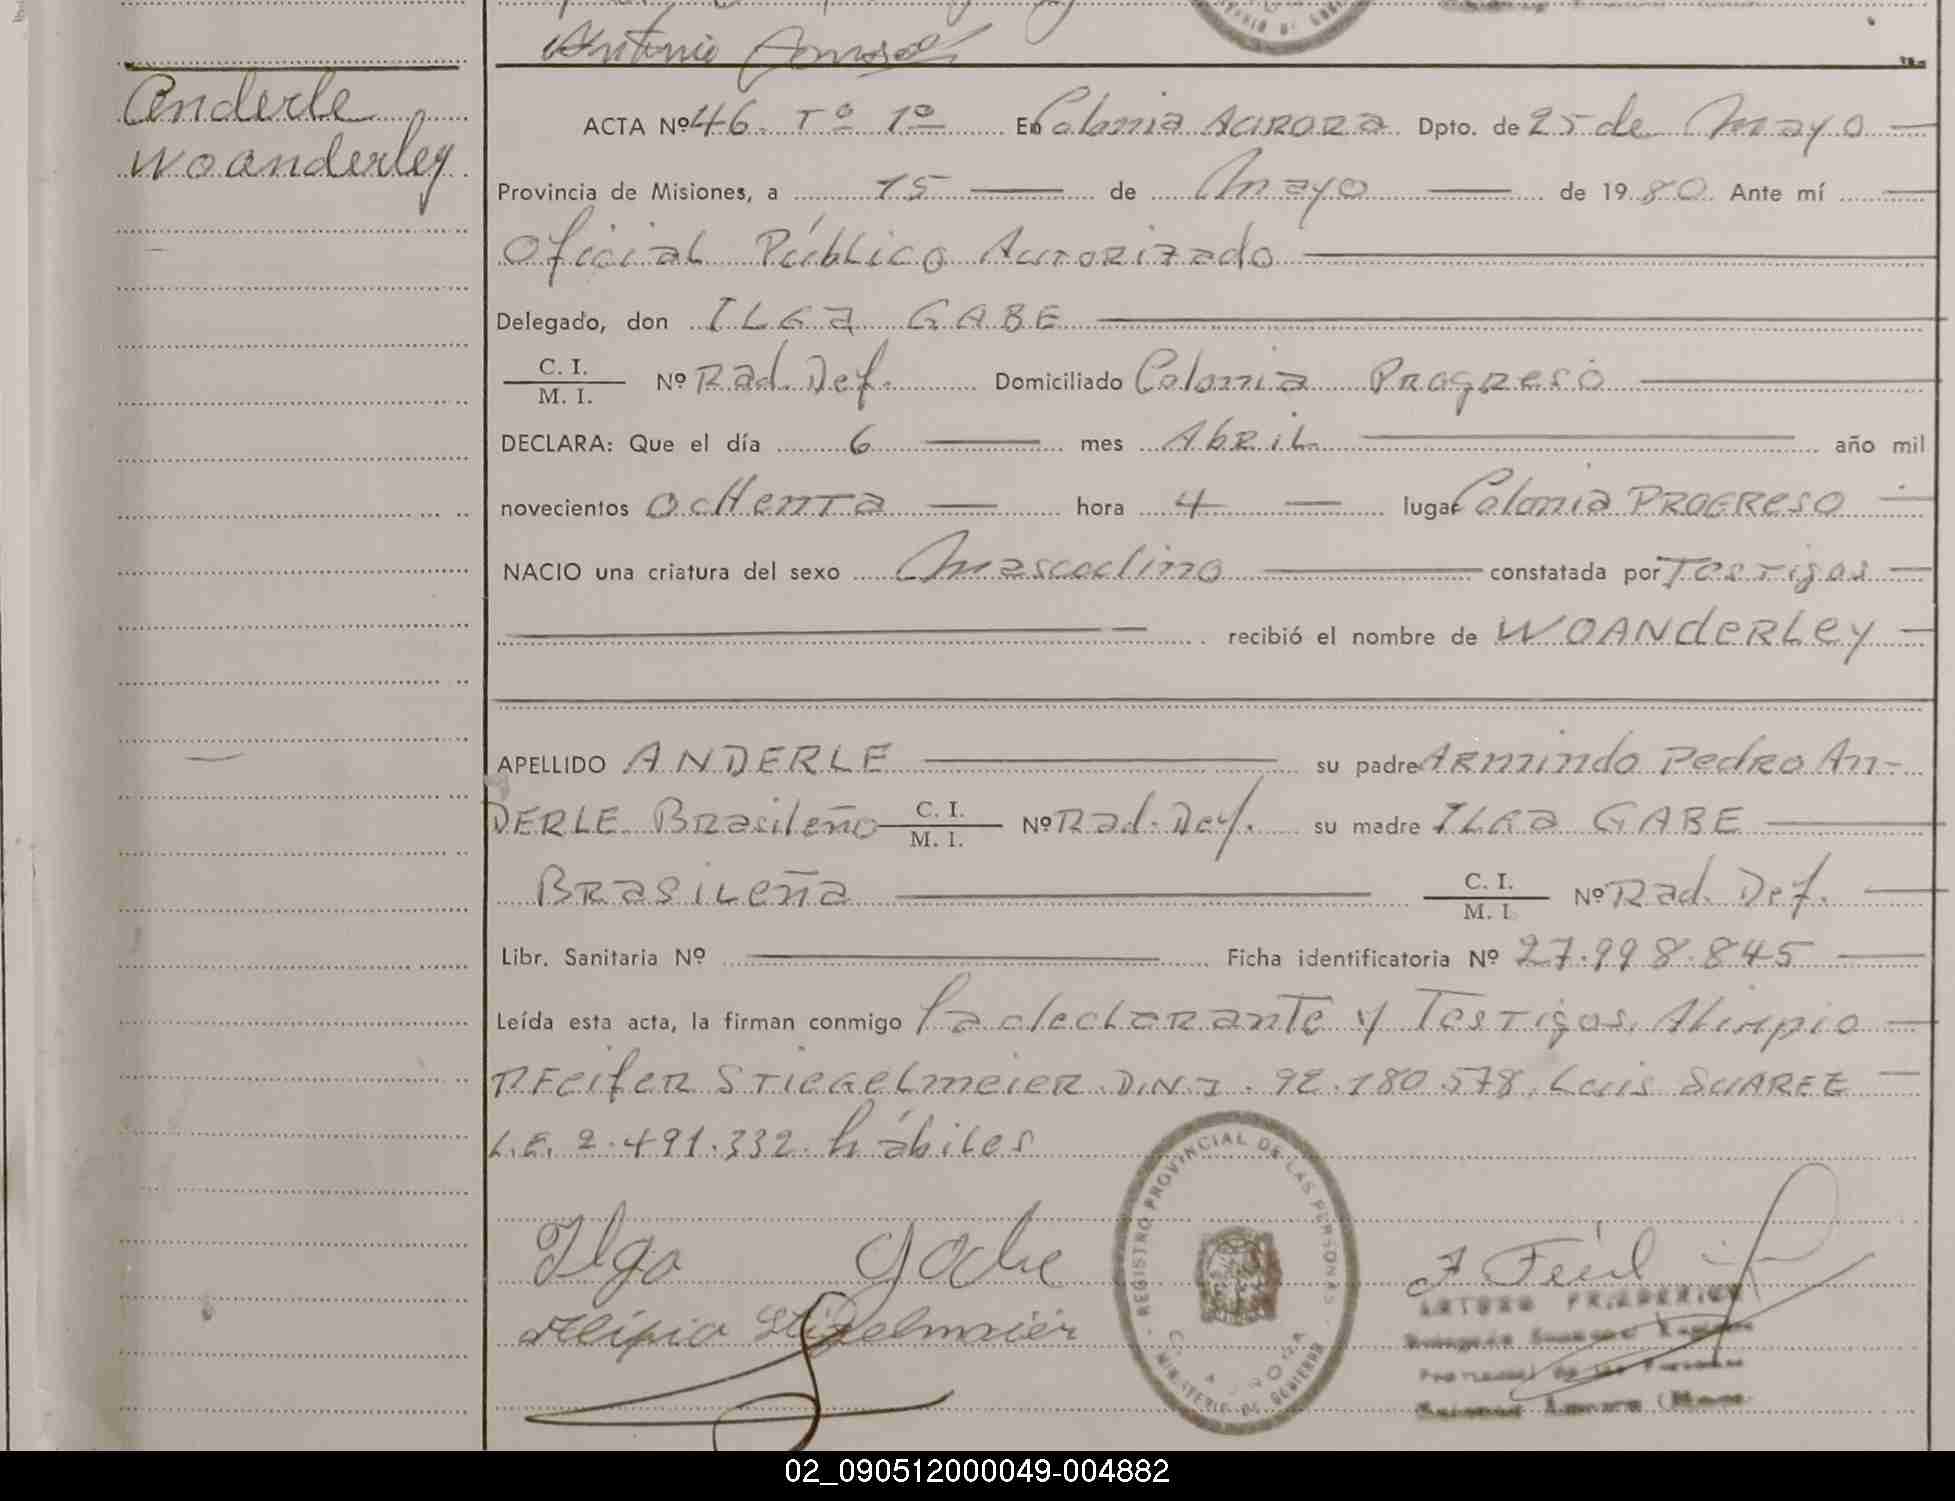 Antonio
Anderle
Woanderley
ACTA Nº 46. Tº 1º En Colonia Aurora Dpto. de 25 de Mayo
Provincia de Misiones, a 15 de Mayo de 1980. Ante mí
Oficial Público Autorizado
Delegado, don ILGA GABE
C. I.
M. I. Nº Rad. Def. Domiciliado Colonia Progreso
DECLARA: Que el día 6 mes Abril año mil
novecientos ocHenTa hora 4 lugar Colonia PROGReso
NACIO una criatura del sexo Masculino constatada por Testigos
recibió el nombre de WOANdeRLey
APELLIDO ANDERLE su padre ARmindo Pedro An-
DERLE Brasileño C. I.
M. I. Nº Rad. Def. su madre ILGa GABE
BRasiLeña C. I.
M. I. Nº Rad. Def.
Libr. Sanitaria Nº Ficha identificatoria Nº 27.998.845
Leída esta acta, la firman conmigo la declarante y Testigos. Alimpio
PFeifeR STiegeLmeieR D.N.I. 92.180.578. Luis SuAREZ
L.E. 2.491.332. hábiles
Ilga Gabe
Stigelmaiér
REGISTRO PROVINCIAL DE LAS PERSONAS
MINISTERIO DE GOBIERNO
02_090512000049-004882